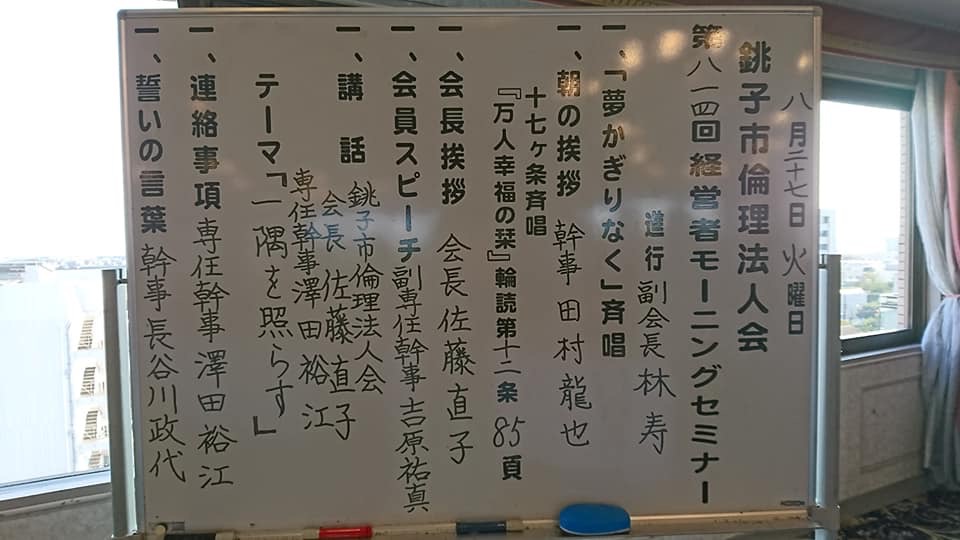 八月二十七日 火曜日
銚子市倫理法人会
第八一四回経営者モーニングセミナー
進行 副会長 林 寿
一、「夢かぎりなく」斉唱
一、朝の挨拶 幹事 田村龍也
十七ヶ条斉唱
『万人幸福の栞』輪読第十二条 85頁
一、会長挨拶 会長 佐藤直子
一、会員スピーチ 副専任幹事 吉原祐真
一、講話 銚子市倫理法人会
会長 佐藤直子
専任幹事 澤田裕江
テーマ「一隅を照らす」
一、連絡事項 専任幹事 澤田裕江
一、誓いの言葉 幹事 長谷川政代